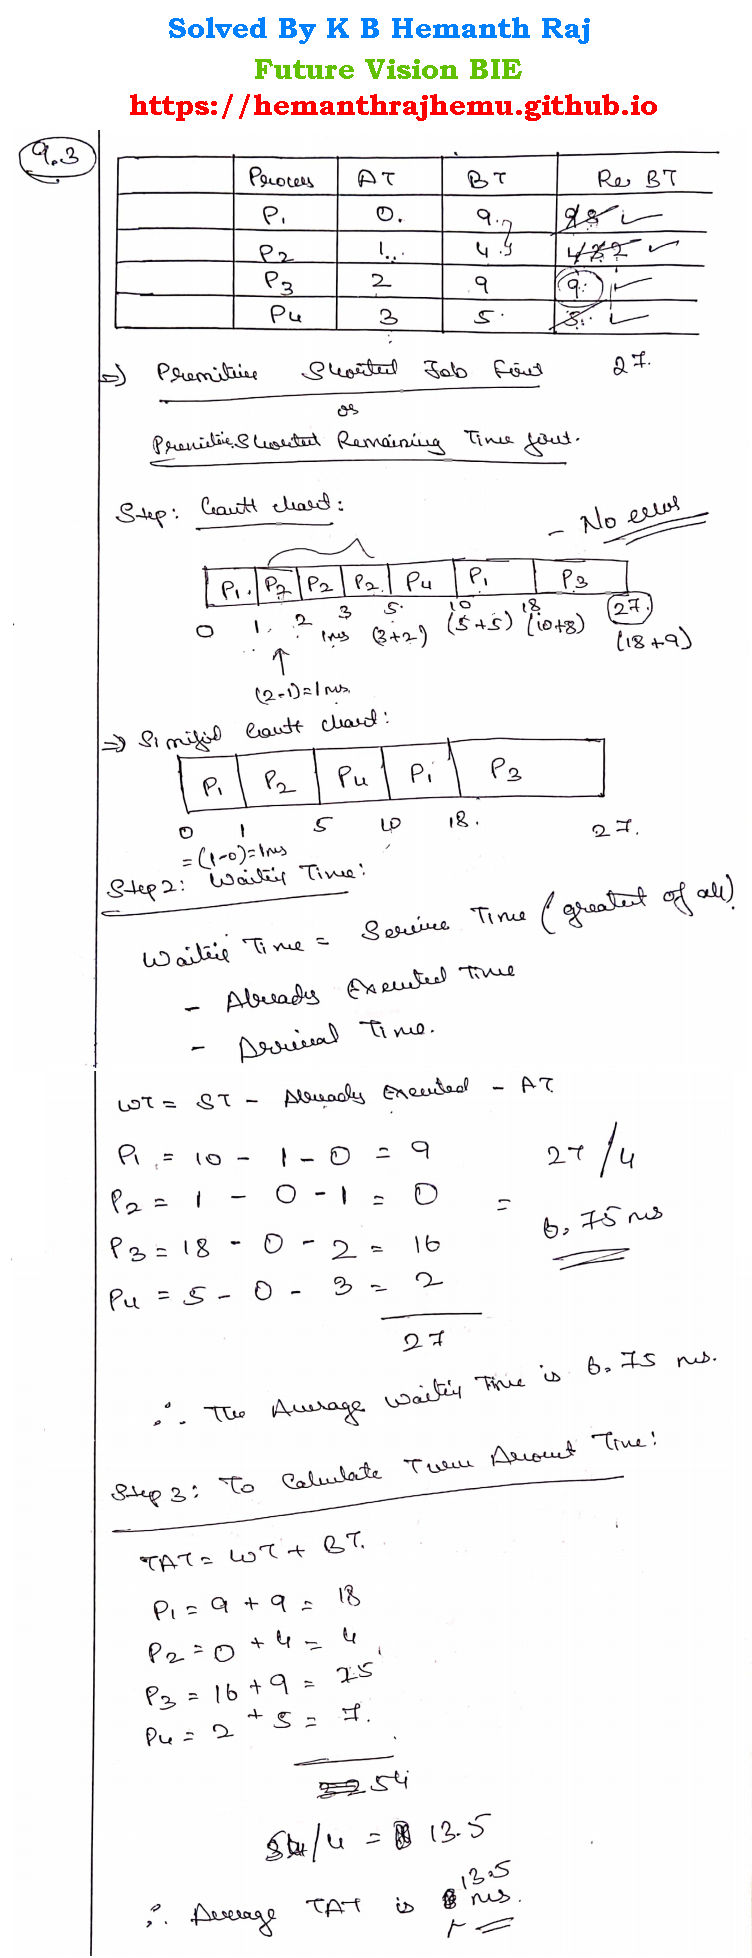 Solved By K B Hemanth Raj
Future Vision BIE
https://hemanthrajhemu.github.io
9.3
Process AT BT Re BT
P1 0. 9. 9 8
P2 1.. 4. 4 3 2
P3 2 9 9.
P4 3 5. 5.
27.
=) Premitive Shorted Job First
or
Premitive Shorted Remaining Time first.
Step: Gantt chart:
- No error
P1. P2 P2 P2 P4 P1 P3
0 1. 2 3 5. 10 18 27.
1ms (3+2) (5+5) (10+8) (18+9)
(2-1)=1ms
=) Simified Gantt chart:
P1 P2 P4 P1 P3
0 1 5 10 18. 27.
=(1-0)=1ms
Step2: Waitig Time:
Waitig Time = Service Time (greatest of all)
- Already Executed Time
- Arrival Time.
WT = ST - Already Executed - AT
P1 = 10 - 1 - 0 = 9
P2 = 1 - 0 - 1 = 0
P3 = 18 - 0 - 2 = 16
P4 = 5 - 0 - 3 = 2
27
27/4
= 6.75 ms
∴ The Average Waitig Time is 6.75 ms.
Step 3: To Calculate Turn Around Time:
TAT = WT + BT.
P1 = 9 + 9 = 18
P2 = 0 + 4 = 4
P3 = 16 + 9 = 25
P4 = 2 + 5 = 7.
54
54/4 = 13.5
∴ Average TAT is 13.5 ms.